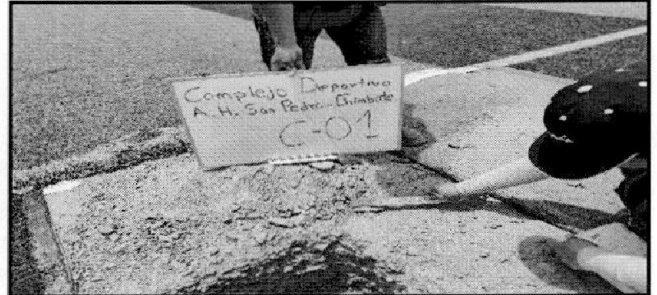 Complejo Deportivo
A.H. San Pedro - Chimbote
C-01